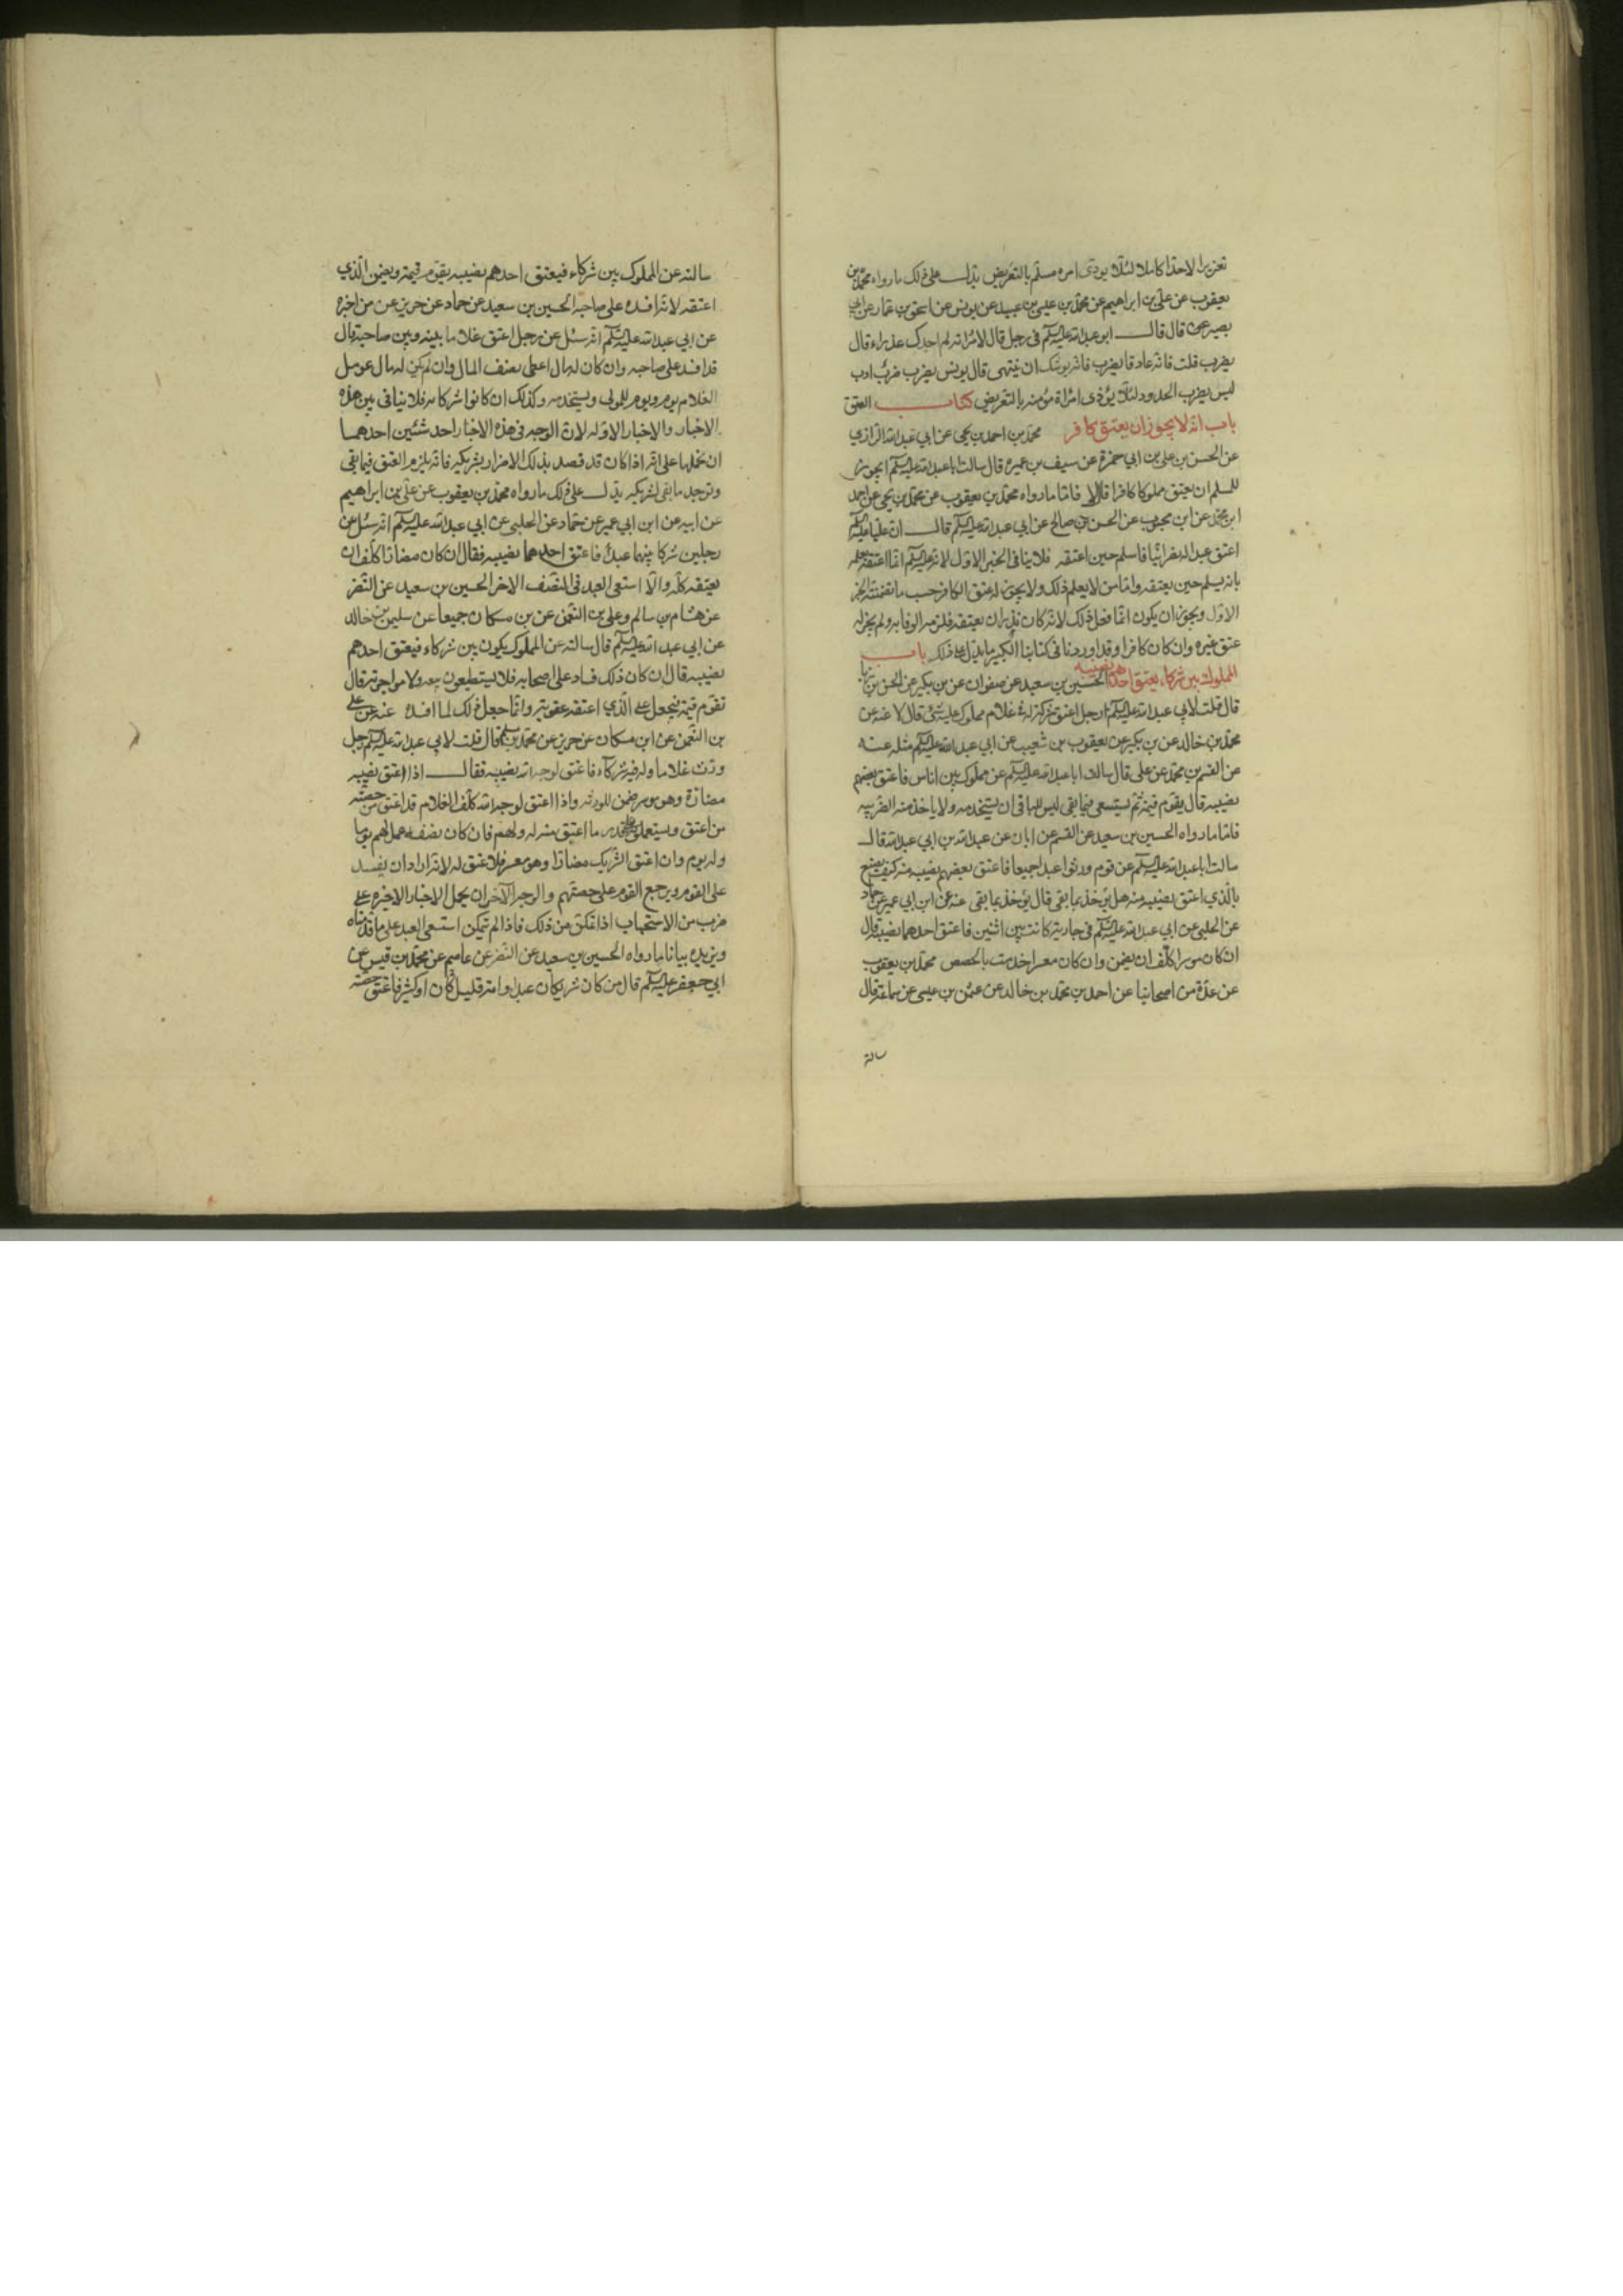 تعزيرا لا حدا كاملا لئلا يوذى امرء مسلم بالتعريض يدل على ذلك ما رواه محمد بن
يعقوب عن علي بن ابراهيم عن محمد بن عيسى بن عبيد عن يونس عن اسحق بن عمار عن ابي
بصير عن قال قال ابو عبد الله عليه السلم في رجل قال لامراته لم اجدك عذراء قال
يضرب قلت فانه عاد قال يضرب فانه يوشك ان ينتهى قال يونس يضرب ضرب ادب
ليس يضرب الحدود لئلا يؤذى امراة مؤمنه بالتعريض كتاب العتق
باب انه لا يجوز ان يعتق كافر محمد بن احمد بن يحيى عن ابي عبد الله الرازي
عن الحسن بن علي بن ابي حمزة عن سيف بن عميره قال سالت ابا عبد الله عليه السلم ايجوز
للمسلم ان يعتق مملوكا كافرا قال لا فاما ما رواه محمد بن يعقوب عن محمد بن يحيى عن احمد
ابن محمد عن ابن محبوب عن الحسن بن صالح عن ابي عبد الله عليه السلم قال ان عليا عليه السلم
اعتق عبدا له نصرانيا فاسلم حين اعتقه فلا ينافى الخبر الاول لانه عليه السلم انما اعتقه لعلمه
بانه يسلم حين يعتقه واما من لا يعلم ذلك ولا يجوز له عتق الكافر حسب ما تضمنه الخبر
الاول ويجوز ان يكون انما فعل ذلك لانه كان نذر ان يعتقه فلزمه الوفا به ولم يجز له
عتق غيره وان كان كافرا وقد اوردنا في كتابنا الكبير ما يدل على ذلك باب
المملوك بين شركاء يعتق احدهم نصيبه الحسين بن سعيد عن صفوان عن بن بكير عن الحسن بن زياد
قال قلت لابي عبد الله عليه السلم رجل اعتق شركة له في غلام مملوك عليه شئ قال لا عنه عن
محمد بن خالد عن بن بكير عن يعقوب بن شعيب عن ابي عبد الله عليه السلم مثله عنه
عن القسم بن محمد عن علي قال سالت ابا عبد الله عليه السلم عن مملوك بين اناس فاعتق بعضهم
نصيبه قال يقوم قيمة ثم يستسعى فيما بقى ليس للباقى ان يستخدمه ولا ياخذ منه الضريبه
فاما ما رواه الحسين بن سعيد عن القسم عن ابان عن عبد الله بن ابي عبد الله قال
سالت ابا عبد الله عليه السلم عن قوم ورثوا عبدا جميعا فاعتق بعضهم نصيبه منه كيف يصنع
بالذي اعتق نصيبه منه هل يؤخذ بما بقى قال يؤخذ بما بقى عنه عن ابن ابي عمير عن حماد
عن الحلبي عن ابي عبد الله عليه السلم في جارية كانت بين اثنين فاعتق احدهما نصيبه قال
ان كان موسرا كلف ان يضمن وان كان معسرا خدمت بالحصص محمد بن يعقوب
عن عدة من اصحابنا عن احمد بن محمد بن خالد عن عثمن بن عيسى عن سماعة قال
سالته
سالته عن المملوك بين شركاء فيعتق احدهم نصيبه يقوم قيمة ويضمن الذي
اعتقه لانه افسده على صاحبه الحسين بن سعيد عن حماد عن حريز عن من اخبره
عن ابي عبد الله عليه السلم انه سئل عن رجل اعتق غلاما بينه وبين صاحبه قال
قد افسد على صاحبه وان كان له مال اعطى نصف المال وان لم يكن له مال عومل
الغلام يوم ويوم للمولى ويستخدمه وكذلك ان كانوا شركاء فلا ينافى بين هذه
الاخبار والاخبار الاوله لان الوجه في هذه الاخبار احد شيئين احدهما
ان نحملها على انه اذا كان قد قصد بذلك الاضرار بشريكه فانه يلزمه العتق فيما بقى
وتوجد ما بقى لشريكه يدل على ذلك ما رواه محمد بن يعقوب عن علي بن ابراهيم
عن ابيه عن ابن ابي عمير عن حماد عن الحلبي عن ابي عبد الله عليه السلم انه سئل عن
رجلين شركا بينهما عبد فاعتق احدهما نصيبه فقال ان كان مضارا كلف ان
يعتقه كله والا استسعى العبد في النصف الاخر الحسين بن سعيد عن النضر
عن هشام بن سالم وعلي بن النعمن عن بن مسكان جميعا عن سليمن بن خالد
عن ابي عبد الله عليه السلم قال سالته عن المملوك يكون بين شركاء فيعتق احدهم
نصيبه قال ان كان ذلك فساد على اصحابه فلا يستطيعون بيعه ولا مواجرته قال
تقوم قيمة فيجعل على الذي اعتقه عقوبة وانما جعل ذلك لما افسده عنه عن علي
بن النعمن عن ابن مسكان عن حريز عن محمد بن مسلم قال قلت لابي عبد الله عليه السلم رجل
ورث غلاما وله فيه شركاء فاعتق لوجه الله نصيبه فقال اذا اعتق نصيبه
مضارة وهو موسر ضمن للورثه واذا اعتق لوجه الله كان الغلام قد اعتق من حصته
من اعتق ويستعملونه على قدر ما اعتق منه له ولهم فان كان نصفه عمل لهم يوما
وله يوم وان اعتق الشريك مضارا وهو معسر فلا عتق له لانه اراد ان يفسد
على القوم ويرجع القوم على حصتهم والوجه الآخر ان يحمل الاخبار الاخيره على
ضرب من الاستحباب اذا تمكن من ذلك فاذا لم يتمكن استسعى العبد على ما قدمناه
ويزيده بيانا ما رواه الحسين بن سعيد عن النضر عن عاصم عن محمد بن قيس عن
ابي جعفر عليه السلم قال من كان شريكا في عبد او امة قليل كان او كثير فاعتق حصته